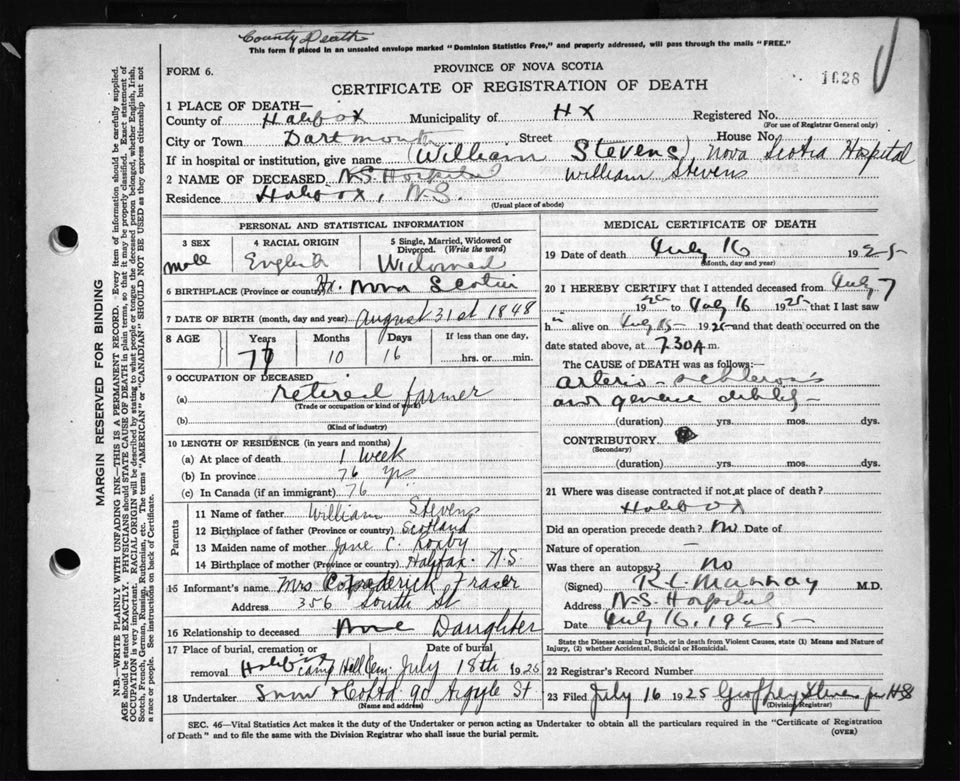 County Death
This form if placed in an unsealed envelope marked "Dominion Statistics Free," and properly addressed, will pass through the mails "FREE."
FORM 6.
PROVINCE OF NOVA SCOTIA
1628
CERTIFICATE OF REGISTRATION OF DEATH
1 PLACE OF DEATH—
County of Halifax Municipality of HX Registered No.
(For use of Registrar General only)
City or Town Dartmouth Street House No.
If in hospital or institution, give name (William Stevens), Nova Scotia Hospital
2 NAME OF DECEASED N.S. Hospital William Stevens
Residence Halifax, N.S.
(Usual place of abode)
PERSONAL AND STATISTICAL INFORMATION
3 SEX 4 RACIAL ORIGIN 5 Single, Married, Widowed or Divorced. (Write the word)
Male English Widowed
6 BIRTHPLACE (Province or country) Hx. Nova Scotia
7 DATE OF BIRTH (month, day and year) August 31st 1848
8 AGE Years Months Days If less than one day,
10 16 hrs. or min.
9 OCCUPATION OF DECEASED
(a) retired farmer
(Trade or occupation or kind of work)
(b)
(Kind of industry)
10 LENGTH OF RESIDENCE (in years and months)
(a) At place of death 1 week
(b) In province 76 yrs
(c) In Canada (if an immigrant) 76
Parents
11 Name of father William Stevens
12 Birthplace of father (Province or country) Scotland
13 Maiden name of mother Jane C. Roxby
14 Birthplace of mother (Province or country) Halifax N.S.
15 Informant's name Mrs Fraser
Address 356 South St
16 Relationship to deceased Daughter
17 Place of burial, cremation or removal Date of burial
Halifax Camp Hill Cem. July 18th 1925
18 Undertaker Snow & Co Ltd 90 Argyle St
(Name and address)
MEDICAL CERTIFICATE OF DEATH
19 Date of death July 16 1925
(Month, day and year)
20 I HEREBY CERTIFY that I attended deceased from July 7
192 to July 16 1925 that I last saw
h im alive on July 15 1925 and that death occurred on
date stated above, at 7.30 A m.
The CAUSE of DEATH was as follows:
arterio-sclerosis
and general debility
(duration) yrs. mos. dys.
CONTRIBUTORY
(Secondary)
(duration) yrs. mos. dys.
21 Where was disease contracted if not at place of death?
Halifax
Did an operation precede death? No Date of
Nature of operation —
Was there an autopsy? no
(Signed) M.D.
Address N.S. Hospital
Date July 16, 1925
State the Disease causing Death, or in death from Violent Causes, state (1) Means and Nature of Injury, (2) whether Accidental, Suicidal or Homicidal.
22 Registrar's Record Number
23 Filed July 16 1925 Geoffrey Stevens
(Division Registrar)
SEC. 46—Vital Statistics Act makes it the duty of the Undertaker or person acting as Undertaker to obtain all the particulars required in the "Certificate of Registration
of Death" and to file the same with the Division Registrar who shall issue the burial permit. (OVER)
MARGIN RESERVED FOR BINDING
N.B.—WRITE PLAINLY WITH UNFADING INK—THIS IS A PERMANENT RECORD. Every item of information should be carefully supplied.
AGE should be stated EXACTLY. PHYSICIANS should STATE CAUSE OF DEATH in plain terms, so that it may be properly classified. Exact statement of
OCCUPATION is very important. RACIAL ORIGIN will be described by stating to what people or tongue the deceased person belonged, whether English, Irish,
Scotch, French, German, Russian, Ruthenian, etc. The terms "AMERICAN" or "CANADIAN" SHOULD NOT BE USED as they express citizenship but not
a race or people. See instructions on back of Certificate.